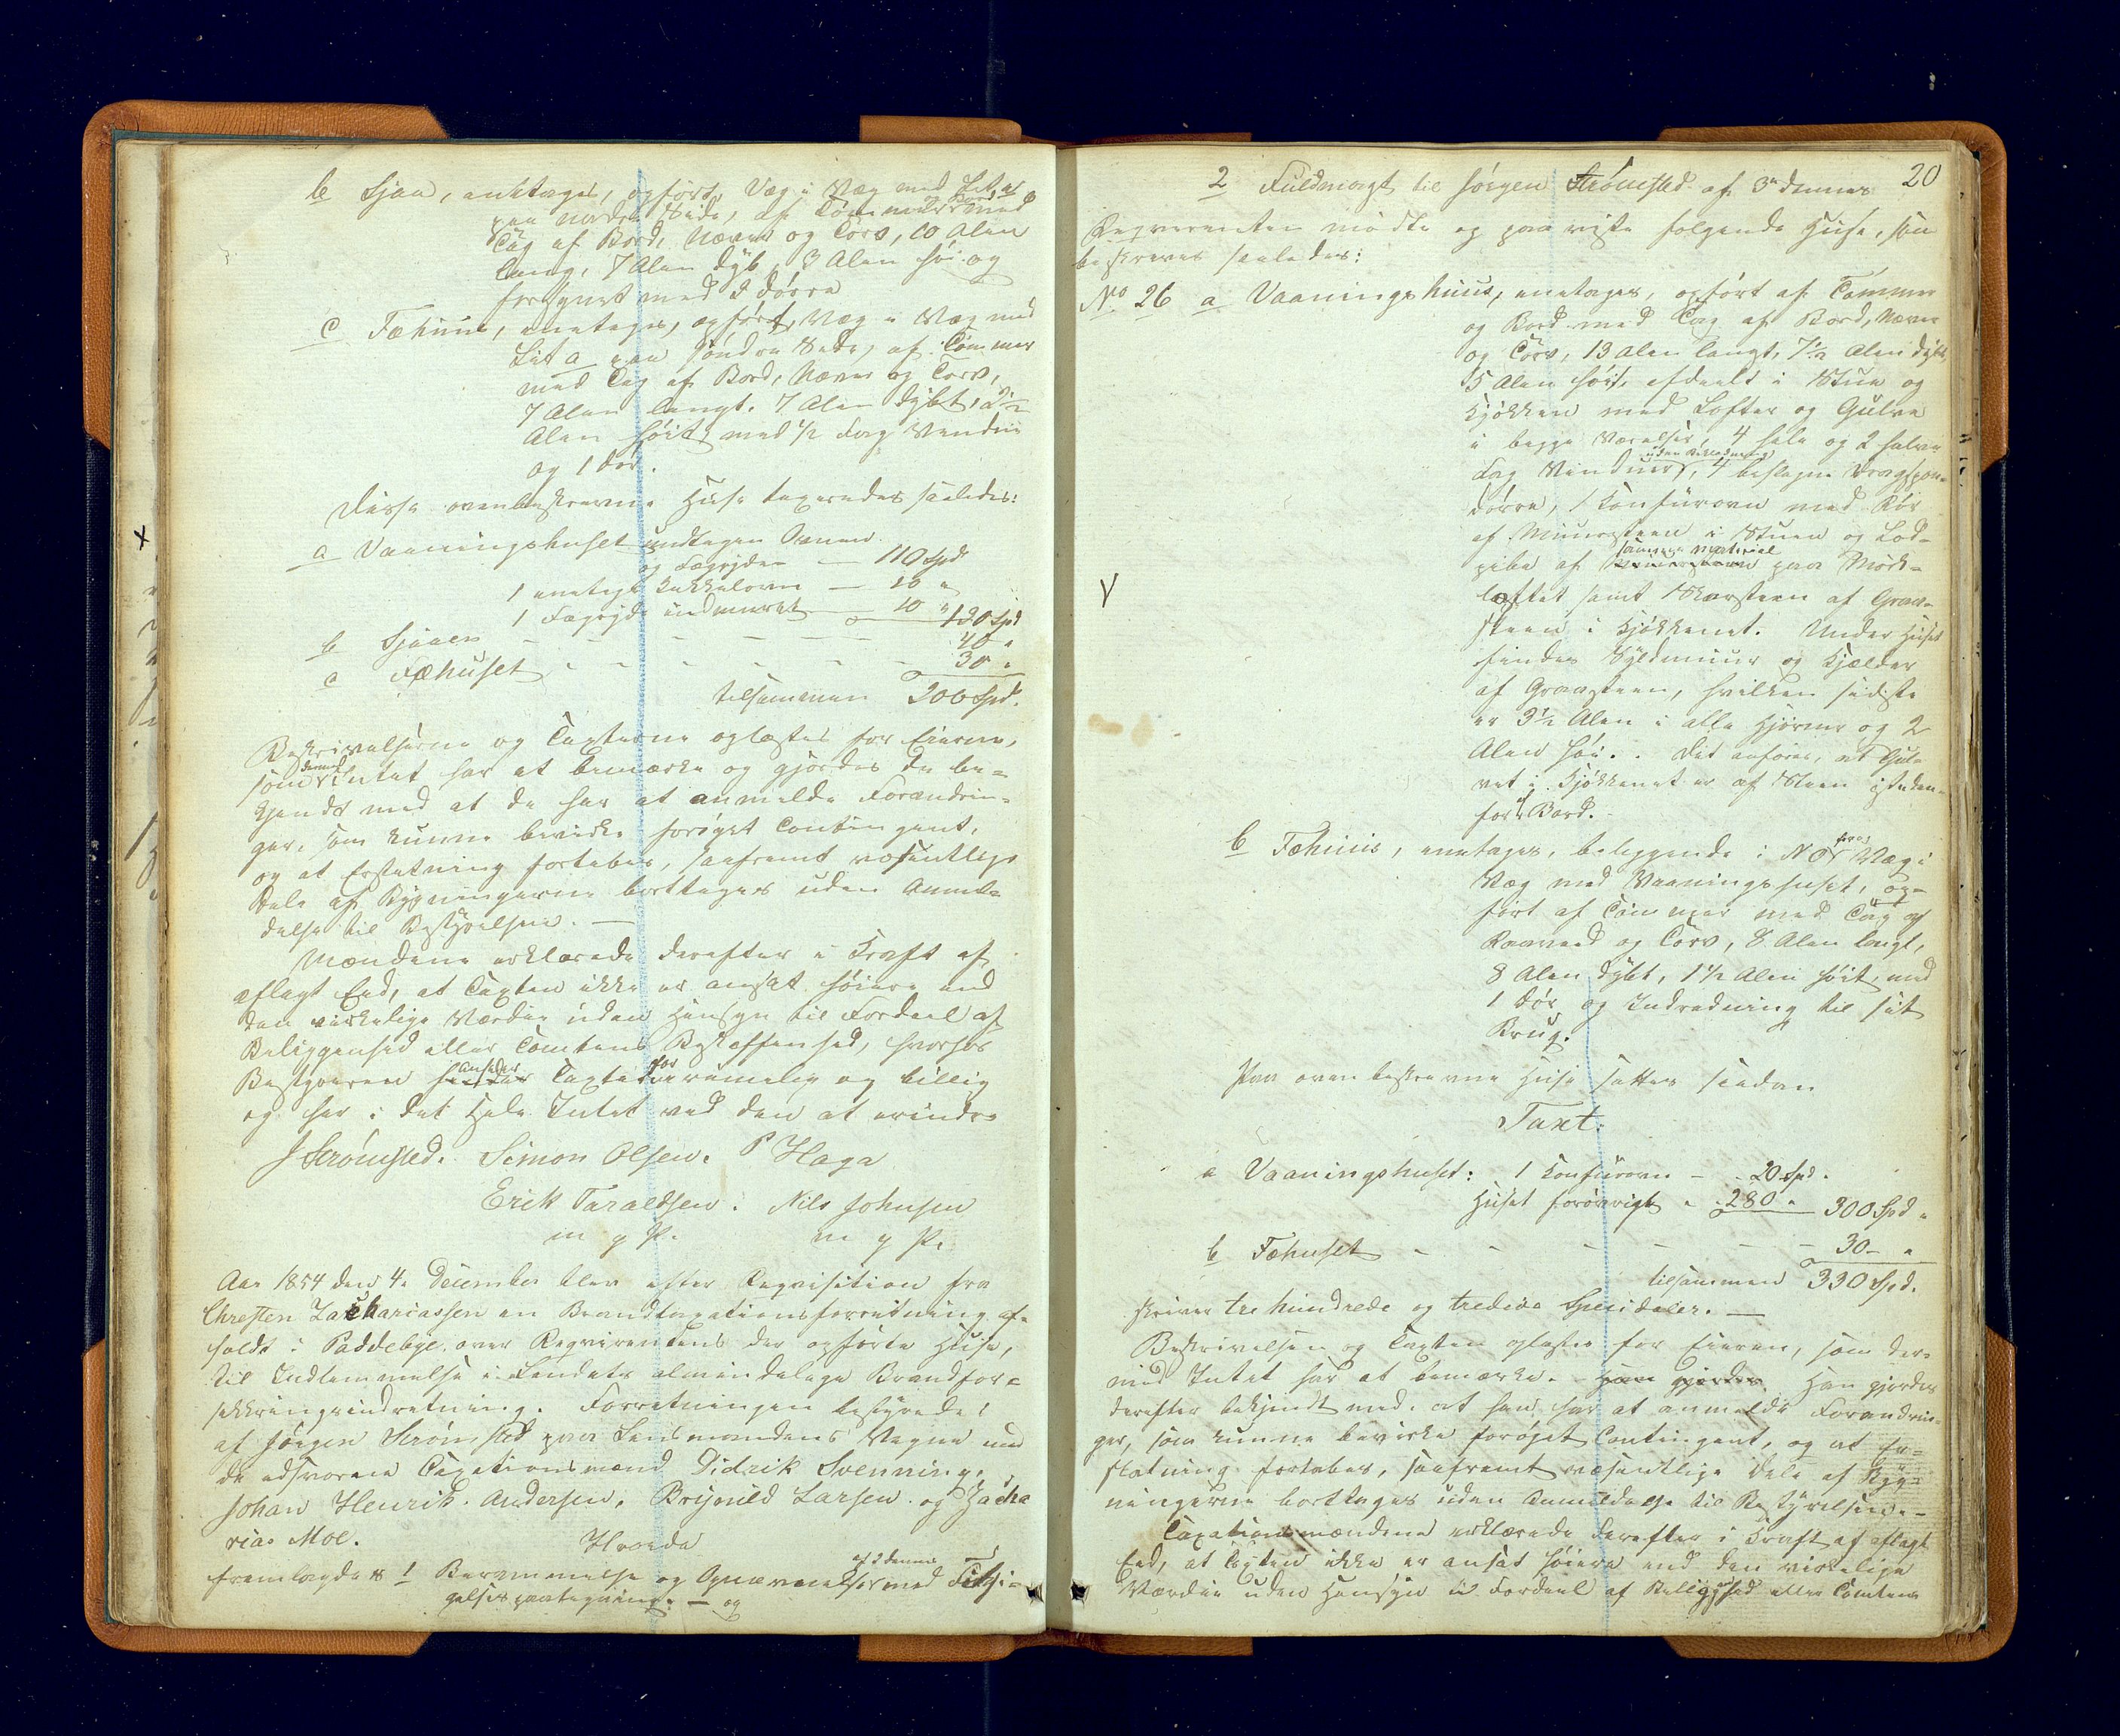 b Sjaa, enetages, opført, Væg i Væg med Lit. a
paa nordre Side, af Tømmer og Bord med
Tag af Bord, Næver og Torv, 10 Alen
lang, 7 Alen dyb, 3 Alen høi og
forsynet med 2 Dørre
c Fæhuus, eenetages, opført, Væg i Væg med
Lit a paa søndre Side, af Tømmer
med Tag af Bord, Næver og Torv,
7 Alen langt, 7 Alen dybt, 2½
Alen høit med ½ Fag Vindue
og 1 Dør.
Disse ovenbeskrevne Huse taxeredes saaledes:
a Vaaningshuset undtagen Ovnen
og Søegryden — 110 Spd
1 eenetages Kakkelovn — 10 "
1 indmuret — 10 " 130 Spd
b Sjaaen - - - - - 40 "
c Fæhuset - - - - - 30 "
tilsammen 200 Spd.
Beskrivelserne og Taxterne oplæstes for Eierne,
som dermed Intet har at bemærke og gjordes de be-
kjendt med at de har at anmelde Forandrin-
ger, som kunne bevirke forøget Contingent,
og at Erstatning fortabes, saafremt væsentlige
Dele af Bygningerne borttages uden Anmel-
delse til Bestyrelsen. —
Mændene erklærede derefter i Kraft af
aflagt Eed, at Taxten ikke er ansat høiere end
den virkelige Værdie uden Hensyn til Fordeel af
Beliggenhed eller Tomtens Beskaffenhed, hvorhos
Bestyreren anseer Taxten for rimelig og billig
og har i det Hele Intet ved den at erindre
J Strømsted. Simon Olsen. P Haga
Erik Taraldsen. Nils Johnsen
m p P. m p P.
Aar 1854 den 4. December blev efter Reqvisition fra
Chresten Zachariassen en Brandtaxationsforretning af-
holdt i Paddebye over Reqvirentens der opførte Huse,
til Indlemmelse i Landets almindelige Brandfor-
sikkringsindretning. Forretningen bestyredes
af Jørgen Strømsted paa Lensmandens Vegne med
de edsvorne Taxationsmænd Didrik Svenning,
Johan Henrik Andersen, Brynild Larsen og Zacha
rias Moe.
Hvorda
fremlagdes 1 Berammelse og Opnævnelse af 2 dennes med Tilsi-
gelsespaategning. — og
20
2 Fuldmagt til Jørgen Strømsted af 3die dennes
Reqvirenten mødte og paaviste følgende Huse, som
beskreves saaledes:
No 26 a Vaaningshuus, eenetages, opført af Tømmer
og Bord med Tag af Bord, Næver
og Torv, 13 Alen langt, 7½ Alen dybt
5 Alen høit, afdeelt i Stue og
Kjøkken med Lofter og Gulve
i begge Værelser, 4 hele og 2 halve
Fag Vinduer uden Beklædning, 4 beslagne
Dørre, 1 Komfurovn med Rør
af Muursteen i Stuen og Lod-
pibe af samme Material paa Mørk-
loftet samt Skorsteen af Graa-
steen i Kjøkkenet. Under Huset
findes Syldmuur og Kjælder
af Graasteen, hvilken sidste
er 3½ Alen i alle Hjørner og 2
Alen høi. Det anføres, at Gul-
vet i Kjøkkenet er af Steen isteden-
for Bord.
b Fæhuus, eenetages, beliggende i NO for, Væg i
Væg med Vaaningshuset, op-
ført af Tømmer med Tag af
Raaved og Torv, 8 Alen langt,
8 Alen dybt, 1½ Alen høit med
1 Dør og Indredning til sit
Brug.
Paa ovenbeskrevne Huse sattes saadan
Taxt.
a Vaaningshuset: 1 Komfurovn - 20 Spd.
Huset forøvrigt - 280 " 300 Spd "
b Fæhuset - - - - - 30 - "
tilsammen 330 Spd.
skriver tre hundrede og tredive Speciedaler. —
Beskrivelsen og Taxten oplæstes for Eieren, som der-
med Intet har at bemærke. Han gjordes Han gjordes
derefter bekjendt med, at han har at anmelde Forandrin-
ger, som kunne bevirke forøget Contingent, og at Er-
statning fortabes, saafremt væsentlige Dele af Byg-
ningerne borttages uden Anmeldelse til Bestyrelsen. —
Taxationsmændene erklærede derefter i Kraft af aflagt
Eed, at Taxten ikke er ansat høiere end den virkelige
Værdie uden Hensyn til Fordeel af Beliggenhed eller Tomtens